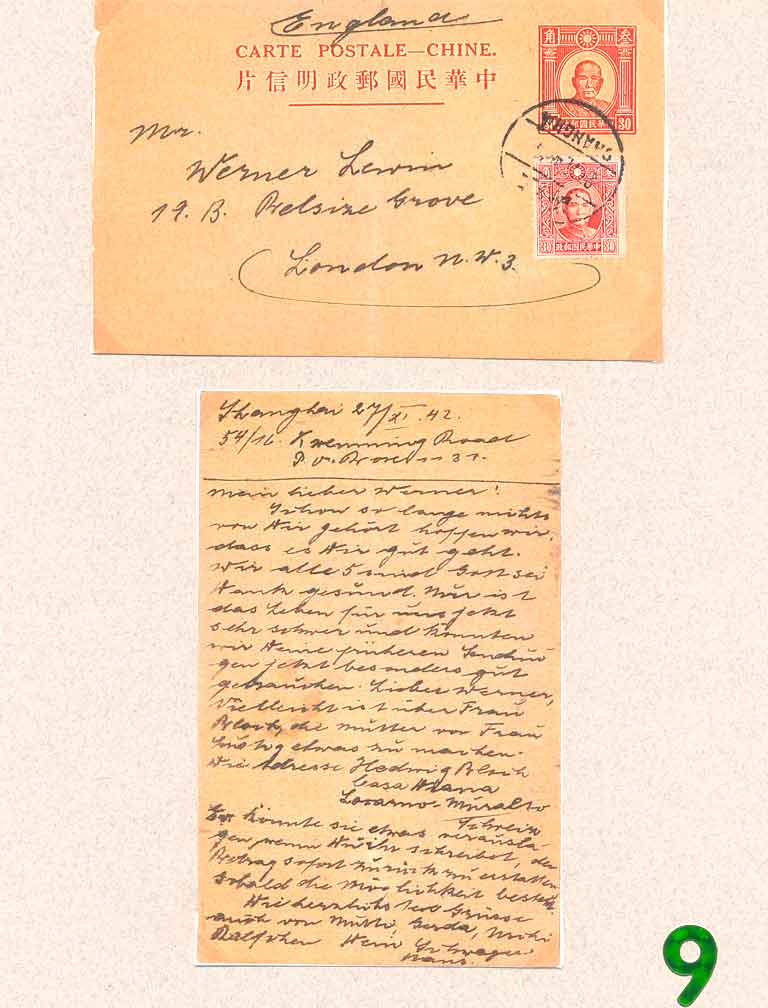 England
CARTE POSTALE—CHINE.
片信明政郵國民華中
角 叁
30
SHANGHAI
Mr.
Werner Lewin
19. B. Belsize Grove
London N.W.3.
30 政郵國民華中 30
Shanghai 27/XI. 42.
54/16. Kwenming Road
P.O. Box
mein lieber Werner!
Schon so lange nichts
von Dir gehört hoffen wir,
dass es Dir gut geht.
Wir alle 5 sind Gott sei
Dank gesund. Nur ist
das Leben für uns jetzt
sehr schwer und könnten
wir Deine früheren Sendun
gen jetzt besonders gut
gebrauchen. Lieber Werner,
Vielleicht ist über Frau
Bloch, die Mutter von Frau
etwas zu machen.
Die Adresse Hedwig Bloch
Casa
Locarno-Muralto
Schweiz
könnte sie etwas verausla-
gen wenn Du ihr schreibst, den
Betrag sofort zurück zu erstatten
sobald die Möglichkeit besteht.
Die herzlichsten Grüsse
auch von Mutti Gerda,
Ralfchen Dein Schwager
Hans.
9